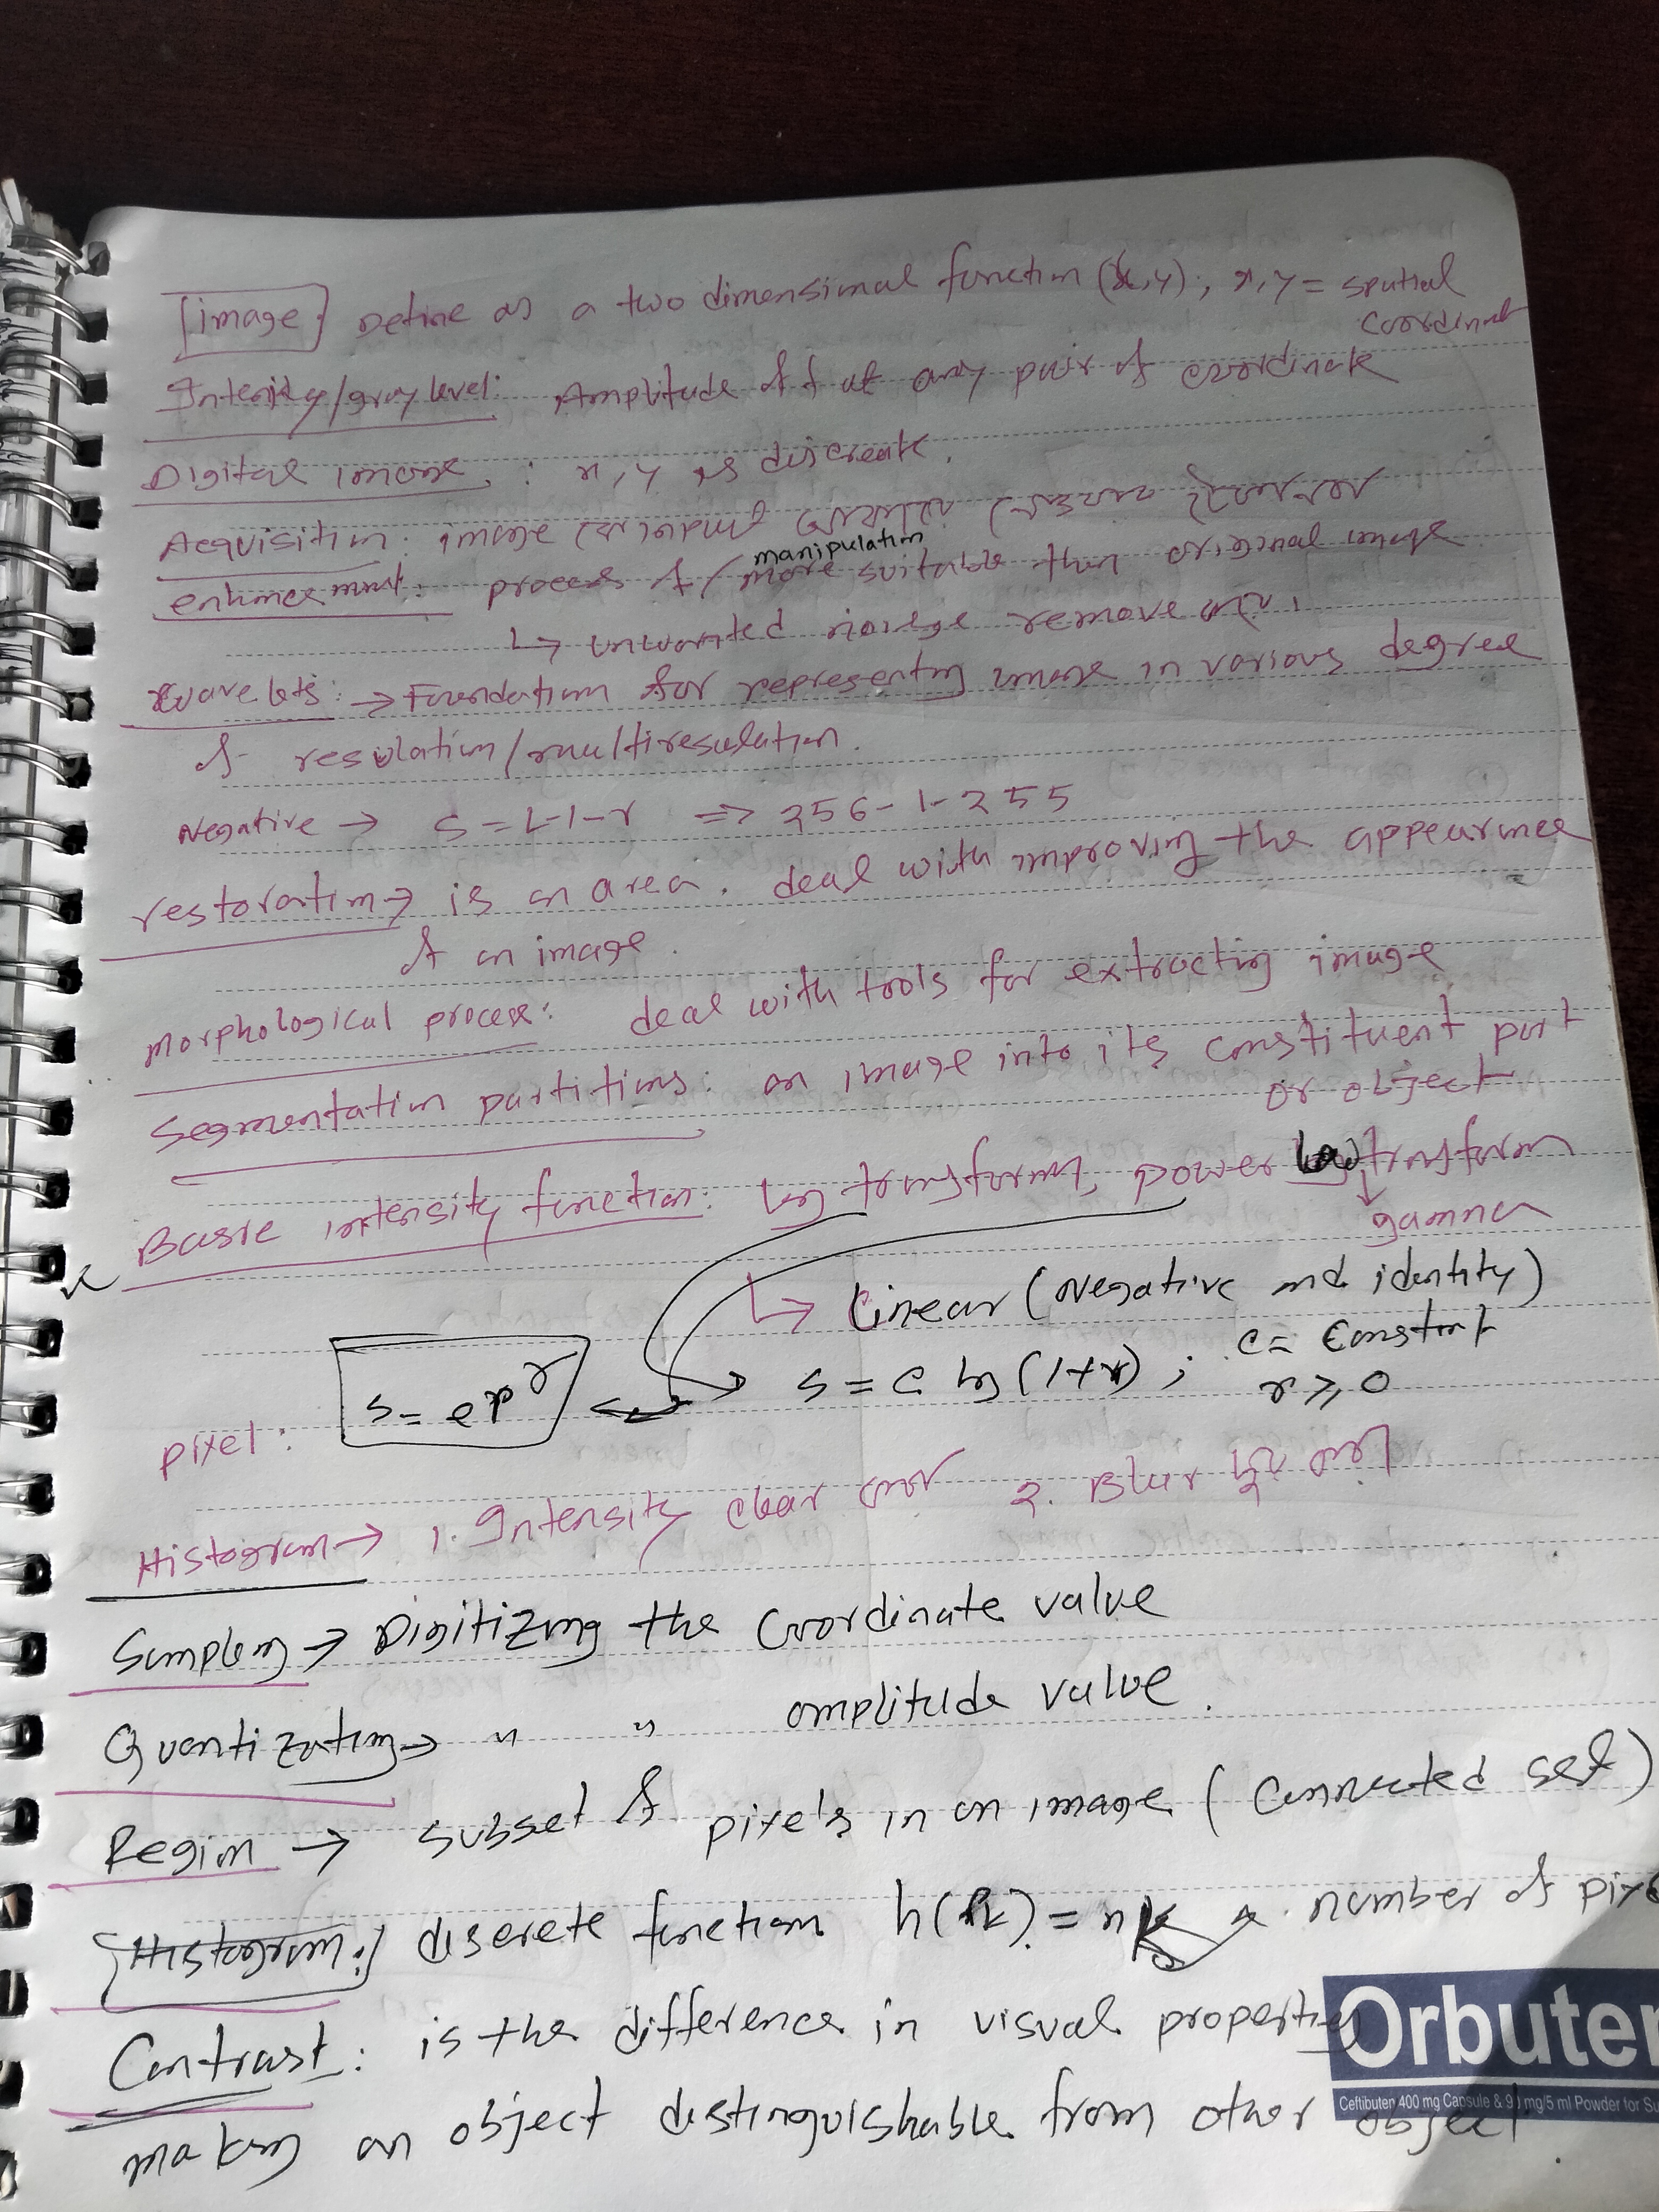 image Define as a two dimensional function (x,y); x,y = spatial
coordinat
Intensity/gray level: Amplitude of f at any pair of coordinate
Digital image : x,y is discreate.
Acquisition: image কে input
manipulation
enhancement: process of / more suitable then original image
↳ unwanted noise remove
wavelets: → Foundation for representing image in various degree
of resolation/multiresulation.
Negative → S = L-1-r => 256-1-255
restoration → is an area. deal with improving the appearance
of an image.
Morphological process: deal with tools for extracting image
Segmentation partitions: an image into its constituent part
or object
Basic intensity function: log transform, power law transform
↓ gamma
↳ Linear (Negative and identity)
s = c log (1+r) ; c = constant
r ≥ 0
s = cr^γ
pixel:
Histogram → 1. Intensity clear 2. Blur
Sampling → Digitizing the coordinate value
Quantization → " " amplitude value.
Region → subset of pixels in an image (connected set)
Histogram: discrete function h(rk) = nk number of
Contrast: is the difference in visual properties
making an object distinguishable from other object
Orbuten
Ceftibuten 400 mg Capsule & 90 mg/5 ml Powder for